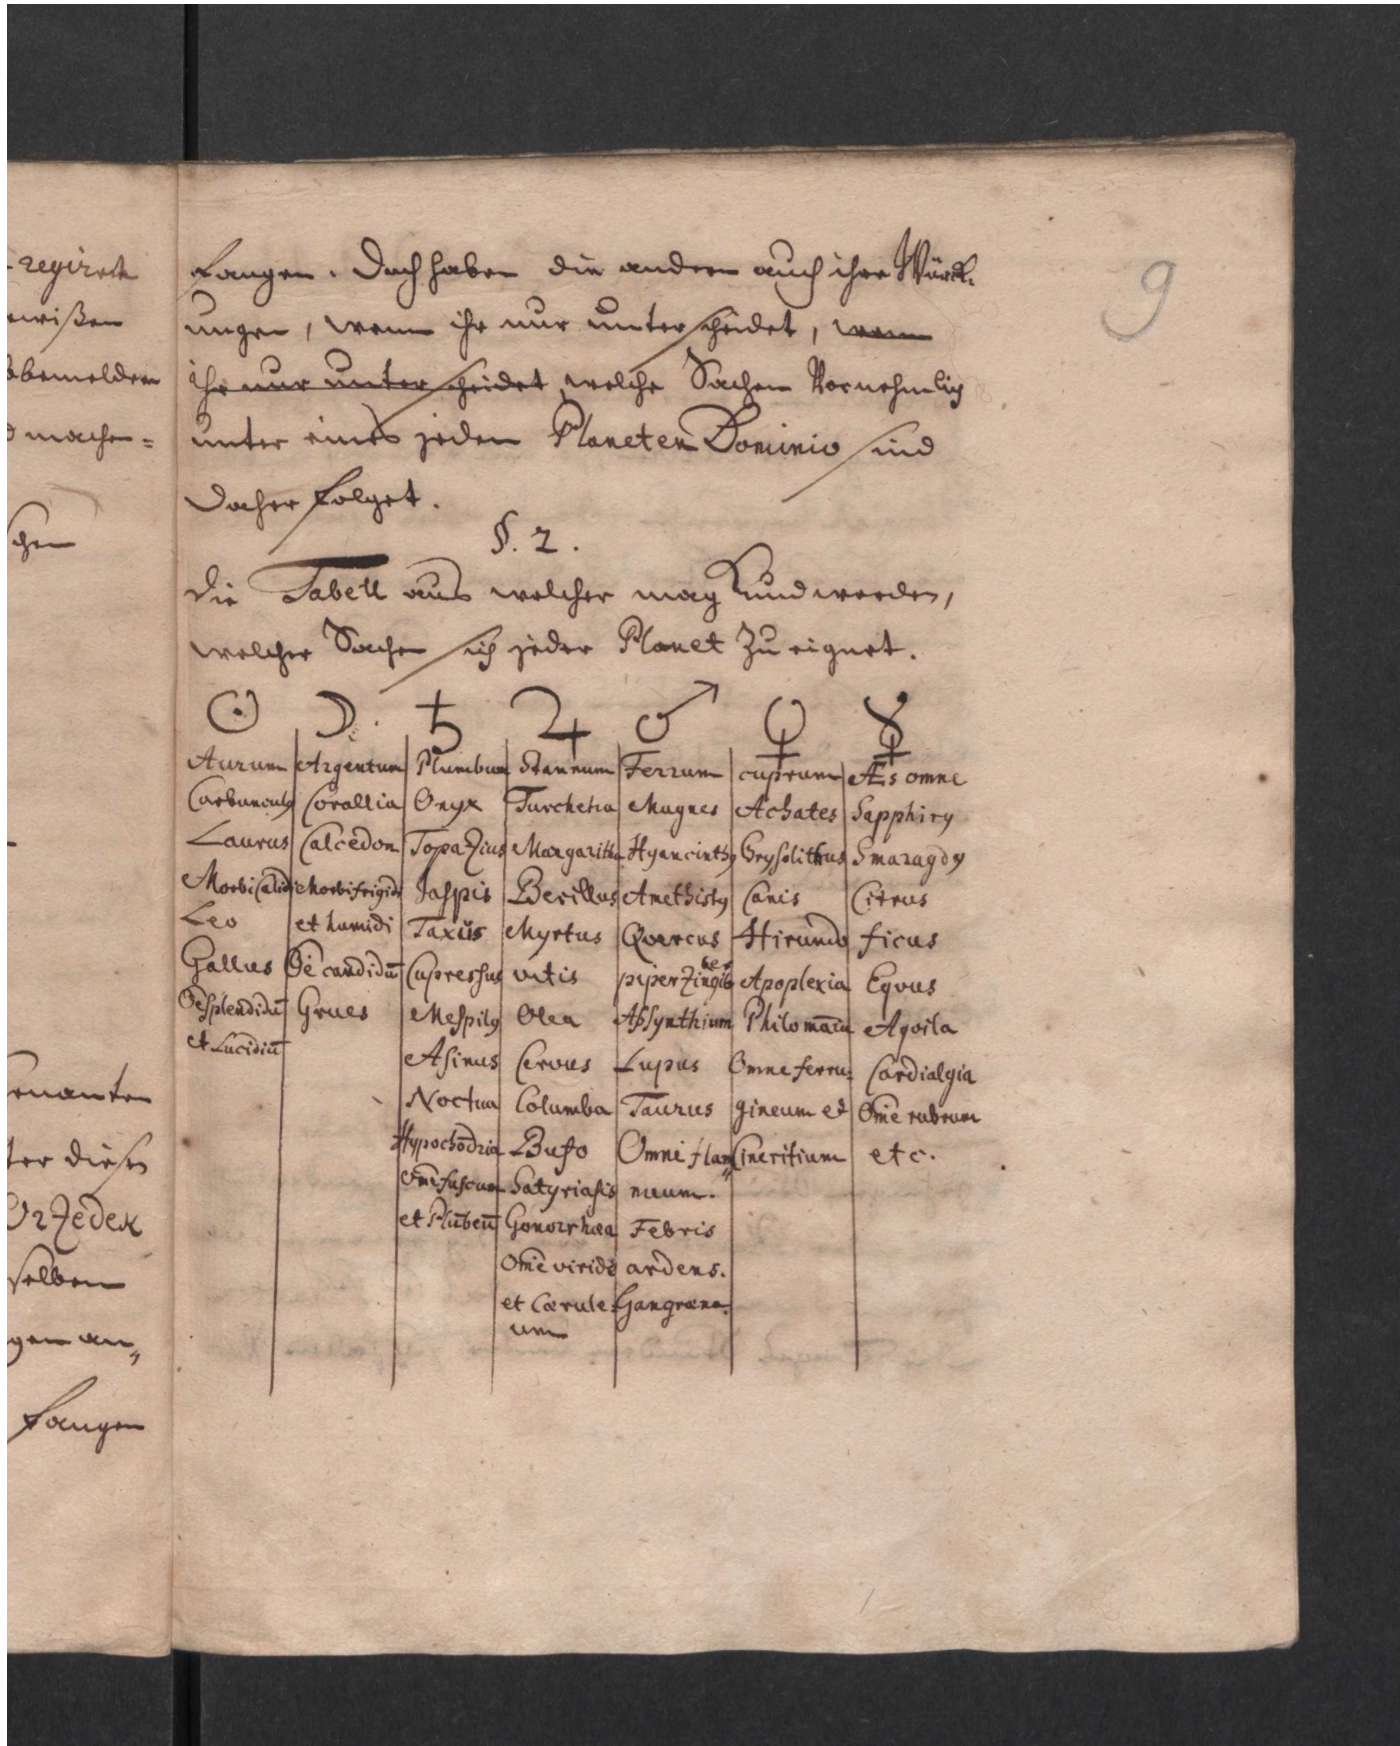 regiret
wißen
bemelden
machen=
chen
genanten
ter diesen
Or Zedek
selben
gen an„
fangen
9
fangen. Doch haben die andern auch ihre Würck-
ungen, wenn ihr nur unterscheidet, wenn
ihr nur unterscheidet welche Sachen Vornehmlich
unter eines jeden Planeten Dominio sind
daher folget.
§. 2.
Die Tabell aus welcher mag Kund werden,
welcher Sachen sich jeder Planet Zu eignet.
☉ ☽ ♄ ♃ ♂ ♀ ☿
Aurum Argentum Plumbum Stannum Ferrum cuprum Æs omne
Carbunculy Corallia Onyx Turchesia Magnes Achates Sapphiry
Laurus Calcedon Topazius Margaritha Hyancinthy Crysolithus Smaragdy
Morbi Calidi Morbi frigidi Jaspis Berillus Amethisty Canis Citrus
Leo et humidi Taxus Myrtus Quercus Hirundo ficus
Gallus Oe candidū Cupressus vitis piper Zingiber Apoplexia Equus
Oe splendidū Grues Mespily Olea Absynthium Philomāia Aqvila
et Lucidiū Asinus Cervus Lupus Omne ferru= Cardialgia
Noctua Columba Taurus gineum et Om̄e rubrum
Hypochōdria Bufo Omne flam„ Cineritium etc.
Om̄e fuscum Satyriasis meum.
et Plūbeū Gonorrhœa Febris
Om̄e viride ardens.
et Cœrule= Gangræna.
um